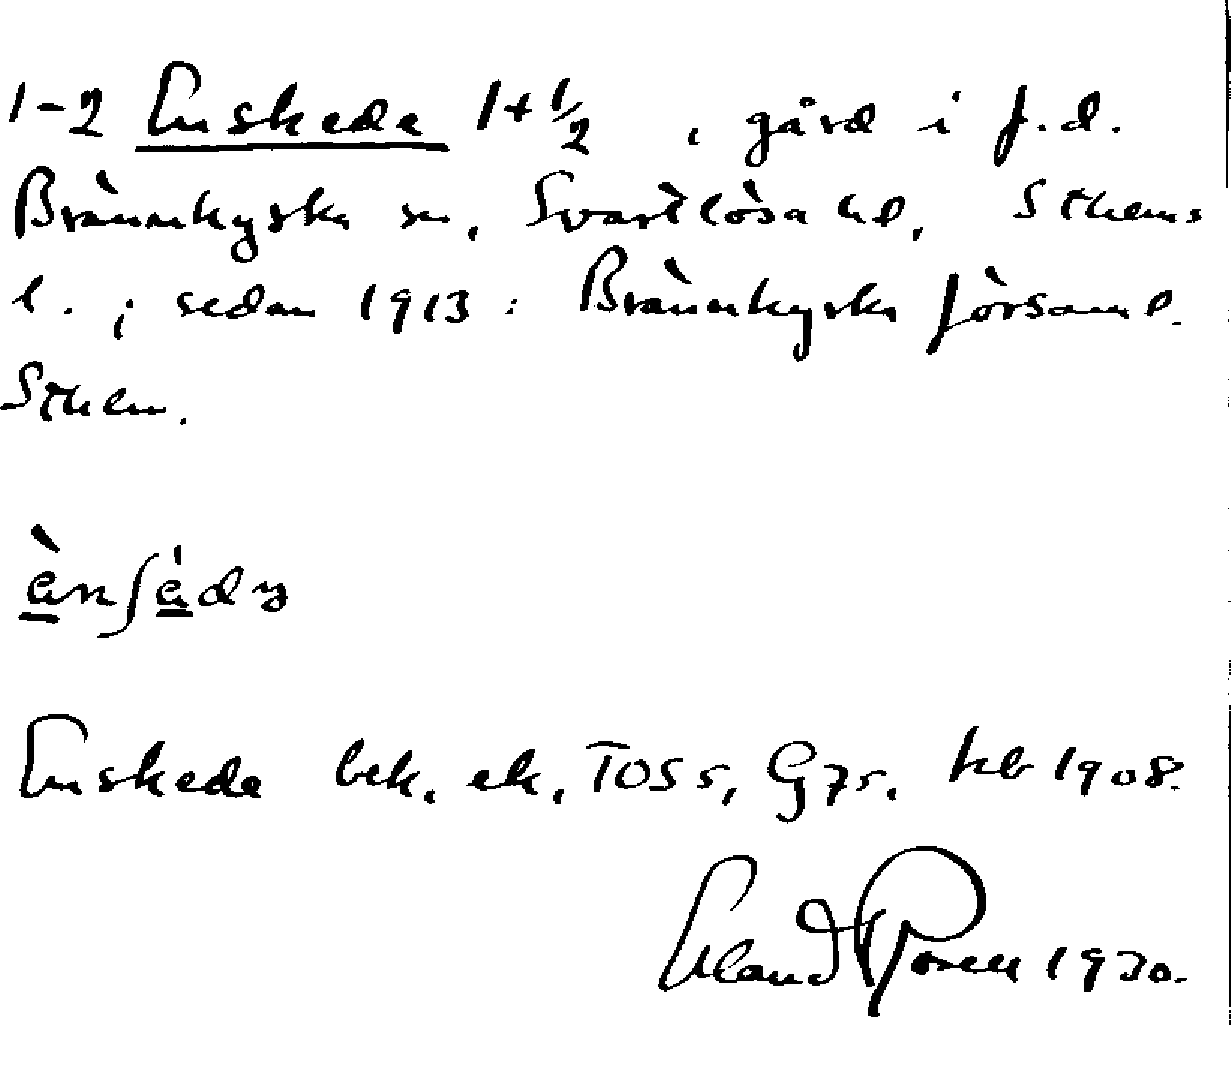 1-2 Enskede 1+1/2, gård i f.d.
Brännkyrka sn, Svartlösa hd, Sthems
l.; sedan 1913: Brännkyrka församl.
Sthlm.
Enskede bek. ek, TOS 5, G 75. hkb 1908.
Erland Rosell 1970.